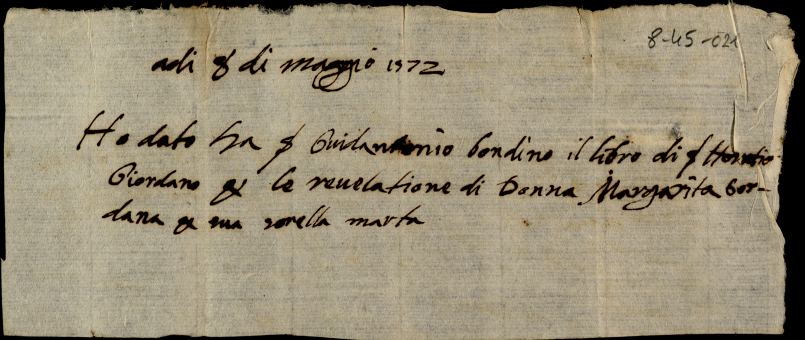 8-45-021
adi 8 di maggio 1572
Ho dato ha Guidantonio bondino il libro di Horatio
Giordano & le reuelatione di Donna Margarita Gor-
dana & sua sorella marta